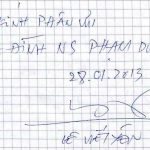 KÍNH PHÂN ƯU
ĐÌNH NS PHẠM D
28.01.2013
LÊ VIẾT YÊN